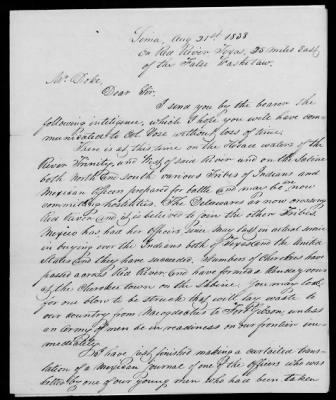 Loma, Aug 21st 1838
On Red River Texas, 25 miles East
of the False Washitaw.
Mr Doke,
Dear Sir,
I send you by the bearer the
following inteligence, which I hope you will have com-
municated to Col Vose without loss of time.
There is at this time on the waters of the
River Trinity, and West of said River and on the Sabine
both North and South various Tribes of Indians and
Mexican Officers prepared for battle and may be now
committing hostilities. The Delawares are now crossing
Red River and it is believed to join the other Tribes.
Mexico has had her officers since May last in actual service
in buying over the Indians both of Texas and the United
States and they have succeeded. Numbers of Cherokees have
passed across Red River, and have formed a rendezvous
at the Cherokee town on the Sabine. You may look
for one blow to be struck that will lay waste to
our country from Nacogdoches to Fort Gibson, unless
an Army of men be in readiness on our frontier im-
mediately.
We have just finished making a curtailed trans-
lation of a Mexican Journal of one of the officers who was
by one of our young men who had been taken